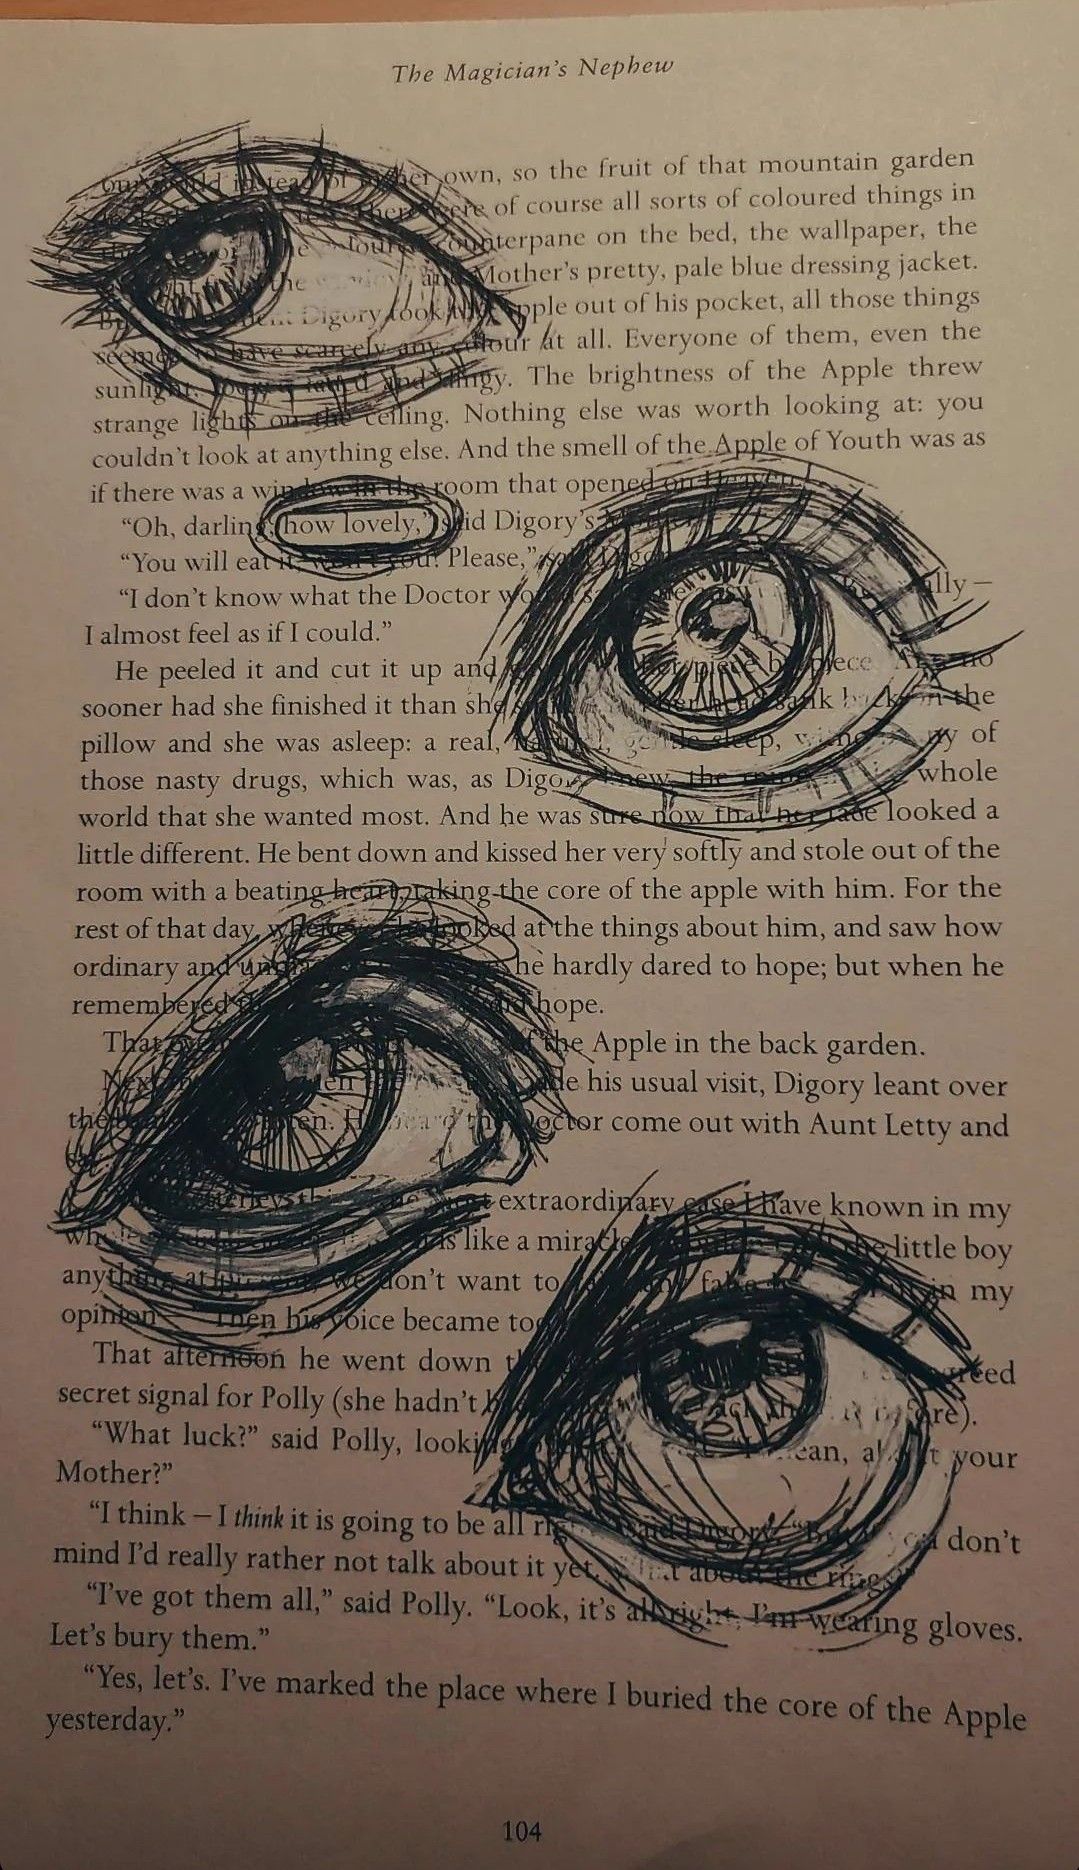 The Magician's Nephew
own, so the fruit of that mountain garden
of course all sorts of coloured things in
counterpane on the bed, the wallpaper, the
the and Mother's pretty, pale blue dressing jacket.
Digory took Apple out of his pocket, all those things
seemed to have scarcely any colour at all. Everyone of them, even the
sunlight, and dingy. The brightness of the Apple threw
strange lights on the ceiling. Nothing else was worth looking at: you
couldn't look at anything else. And the smell of the Apple of Youth was as
if there was a window in the room that opened on Heaven.
“Oh, darling, how lovely,” said Digory's
“You will eat it, won't you? Please,” said
“I don't know what the Doctor –
I almost feel as if I could.”
He peeled it and cut it up and piece by piece. And no
sooner had she finished it than she her head sank back on the
pillow and she was asleep: a real, gentle sleep, of
those nasty drugs, which was, as Digory knew, the whole
world that she wanted most. And he was sure now that her face looked a
little different. He bent down and kissed her very softly and stole out of the
room with a beating heart, taking the core of the apple with him. For the
rest of that day, whenever he looked at the things about him, and saw how
ordinary and he hardly dared to hope; but when he
remembered hope.
That the Apple in the back garden.
Next his usual visit, Digory leant over
the listen. He heard the Doctor come out with Aunt Letty and
extraordinary case I have known in my
is like a miracle. the little boy
anything at present; we don't want to false in my
opinion Then his voice became too
That afternoon he went down
secret signal for Polly (she hadn't before).
“What luck?” said Polly, looking mean, about your
Mother?”
“I think – I think it is going to be all right,” said Digory. “But if you don't
mind I'd really rather not talk about it yet. What about the rings?”
“I've got them all,” said Polly. “Look, it's all right, I'm wearing gloves.
Let's bury them.”
“Yes, let's. I've marked the place where I buried the core of the Apple
yesterday.”
104